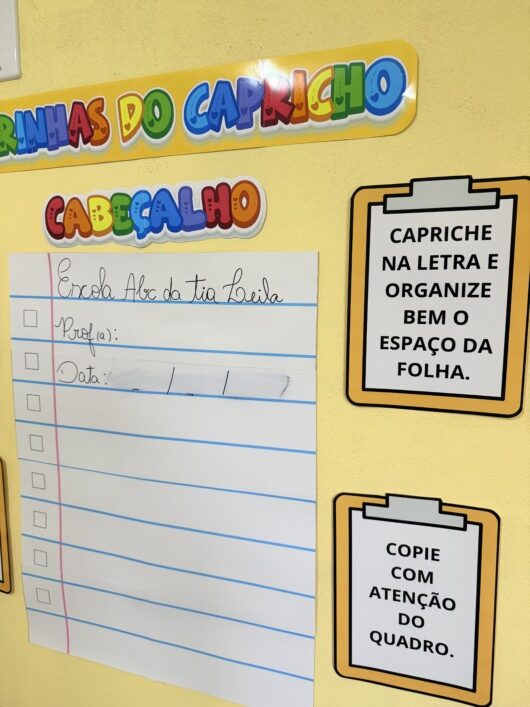 RINHAS DO CAPRICHO
CABEÇALHO
Escola Abc da tia Leila
Prof(a):
Data: / /
CAPRICHE
NA LETRA E
ORGANIZE
BEM O
ESPAÇO DA
FOLHA.
COPIE
COM
ATENÇÃO
DO
QUADRO.